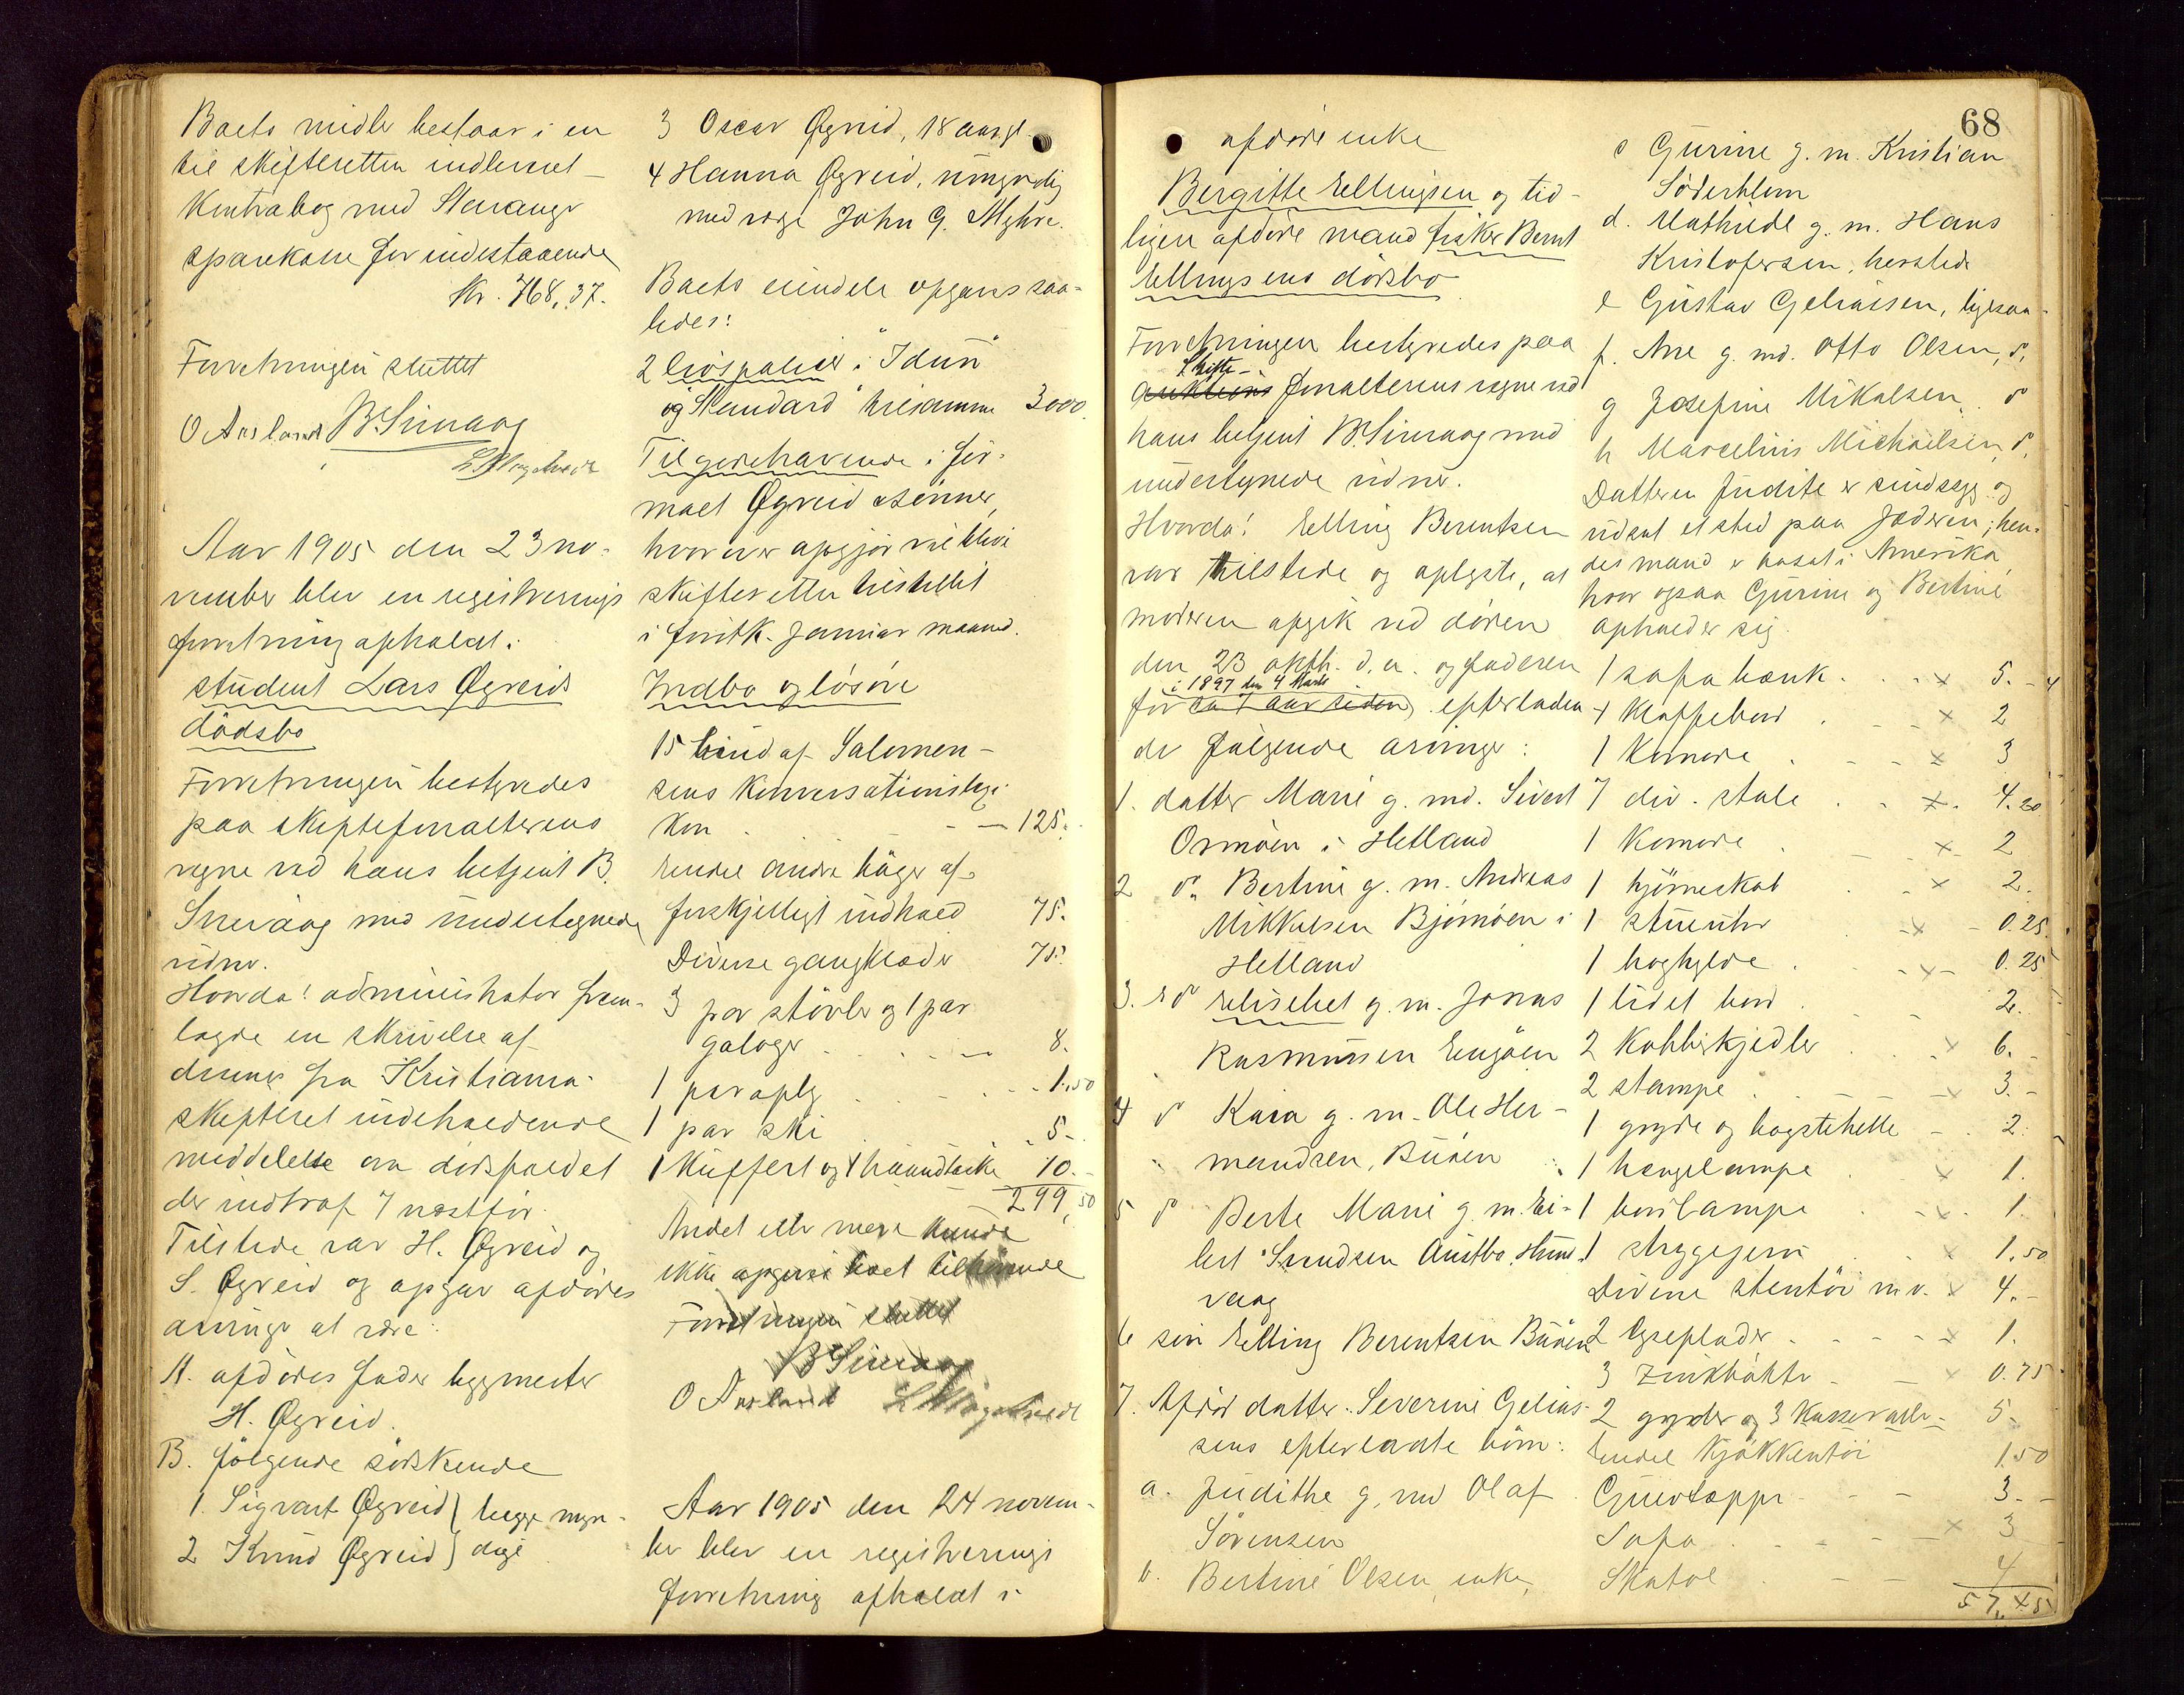 Boets midler bestaar i en
til skifteretten indleveret
Kontrabog med Stavanger
sparekasse for indestaaende
Kr. 768,37.
Forretningen sluttet
O Aarland B. Simaag
Aar 1905 den 23 no-
vember blev en registrerings
forretning afholdt i
student Lars Øgreids
dødsbo
Forretningen bestyredes
paa skifteforvalterens
vegne ved hans betjent B.
Simaag med undertegnede
vidner.
Hvorda! administrator frem-
lagde en skrivelse af
d.m. fra Kristiania
skifteret indeholdende
meddelelse om dødsfaldet
der indtraf 7 næstfør.
Tilstede var H. Øgreid og
S. Øgreid og opgav afdødes
arvinger at være:
A. afdødes fader bygmester
H. Øgreid.
B. følgende søskende
1. Sigvart Øgreid } begge myn-
2 Knud Øgreid } dige
3 Oscar Øgreid, 18 aar gl.
4 Hanna Øgreid, umyndig
med værge John G. Myhre.
Boets eiendele opgaves saa-
ledes:
2 livspolicer i "Idun"
og "Standard" tilsammen 3000.
Tilgodehavende i fir-
maet Øgreid & sønner,
hvorover opgjør vil blive
skifteretten tilstillet
i førstk. januar maaned.
Indbo og løsøre
15 bind af Salomon-
sens Konversationslexi-
kon - - 125.
Endel andre bøger af
forskjelligt indhold 75.
Diverse gangklæder 75.
3 par støvler og 1 par
galoger . . . . 8.
1 paraply . . . . 1.50
1 par ski . 5.-
1 kuffert og 1 haandtaske 10.-
299,50
Andet eller mere kunde
ikke opgives boet tilhørende
Forretningen sluttet
B Simaag
O Aarland
Aar 1905 den 24 novem-
ber blev en registrerings
forretning afholdt i
68
afdøde enke
Bergitte Ellingsen og tid-
ligere afdøde mand fisker Bernt
Ellingsens dødsbo
Forretningen bestyredes paa
Skifte-
auktions forvalterens vegne ved
hans betjent B. Simaag med
undertegnede vidner.
Hvorda! Elling Berentsen
var tilstede og oplyste, at
moderen afgik ved døden
den 23 oktb. d. a. og faderen
i 1897 den 4 Marts
for ca 7 aar siden, efterladen
de følgende arvinger:
1. datter Marie g. md. Sivert
Osmoen i Hetland
2 do. Bertine g. m. Andreas
Mikkelsen Bjørnøen i
Hetland
3. do Elisebet g. m. Jonas
Rasmussen Engøen
4 do Kaia g. m. Ole Her-
mandsen, Buøen
5 do Berte Marie g. m. Ei-
lert Svendsen Austbø, Hund-
vaag
6 søn Elling Berentsen Buøen
7. Afdød datter Severine Gelias-
sens efterladte børn:
a. Judithe g. md Olaf
Sørensen
b. Bertine Olsen, enke,
c Gurine g. m. Kristian
Söderblom
d. Mathilde g. m. Hans
Kristofersen, hersteds
e Gustav Geliassen, ligesaa.
f. Ane g. md. Otto Olsen, do.
g Josefine Mikalsen, do
h Marcelius Michaelsen, do.
Datteren Judite er sindssyg og
udsat etsted paa Jæderen; hen-
des mand er bosat i Amerika,
hvor ogsaa Gurine og Bertine
opholder sig.
1 sofabænk . . . x 5.-
1 Klaffebord . . - x 2
1 Komode . - - x 3
7 div. stole . . x. 4.20
1 Komode . - - x 2
1 hjørneskab . - x 2.
1 stueuhr -x - 0.25
1 boghylde . . -x- 0.25
1 lidet bord . . - - 2.
2 Kobberkjedler . . x 6.-
2 stampe . . - - x 3.-
1 gryde og bagstehelle - . 2.
1 hængelampe . x 1.
1 bordlampe . . x. 1.
1 strygejern . . x 1,50
Diverse stentøi m.v. x 4.-
2 lyseplader - - - - x 1.
3 zinkbøtter - - x 0.75
2 gryder og 3 kasseroller - 5-
Endel Kjøkkentøi 1.50
Gulvtæppe - - - 3.-
Sofa . - - - x 3
Skatol . - - 4
57,45